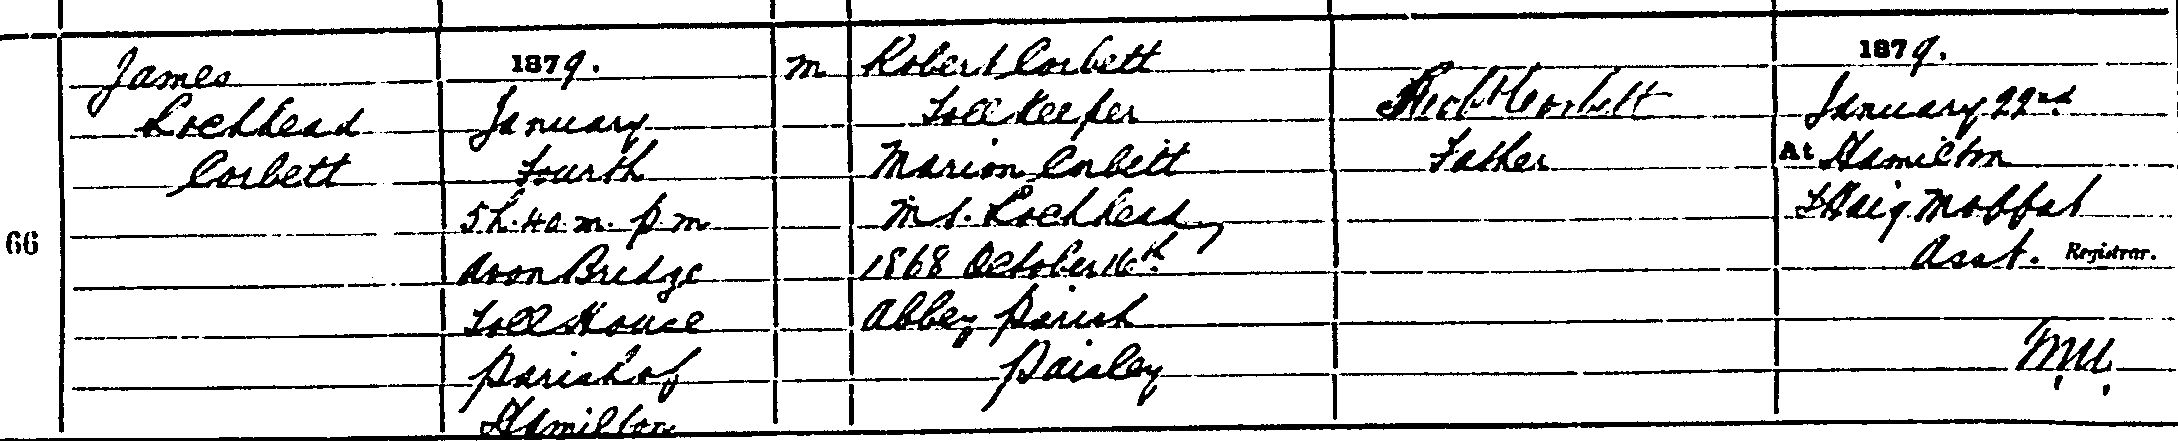 66
James
Lochhead
Corbett
1879.
January
Fourth
5h. 40 m. p m
Avon Bridge
Toll House
Parish of
Hamilton
M
Robert Corbett
Toll Keeper
Marion Corbett
M.S. Lochhead,
1868 October 16th.
Abbey Parish
Paisley
Robt Corbett
Father
1879.
January 22nd.
At Hamilton
Haig Moffat
Asst. Registrar.